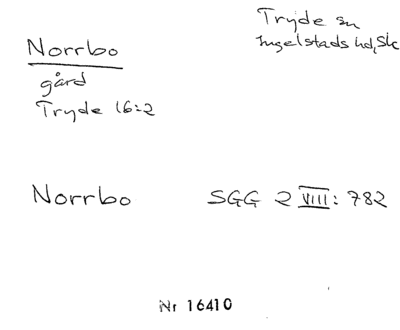 Norrbo
gård
Tryde 16:2
Tryde sn
Ingelstads hd, Sk
Norrbo
SGG 2 VIII: 782
Nr 16410